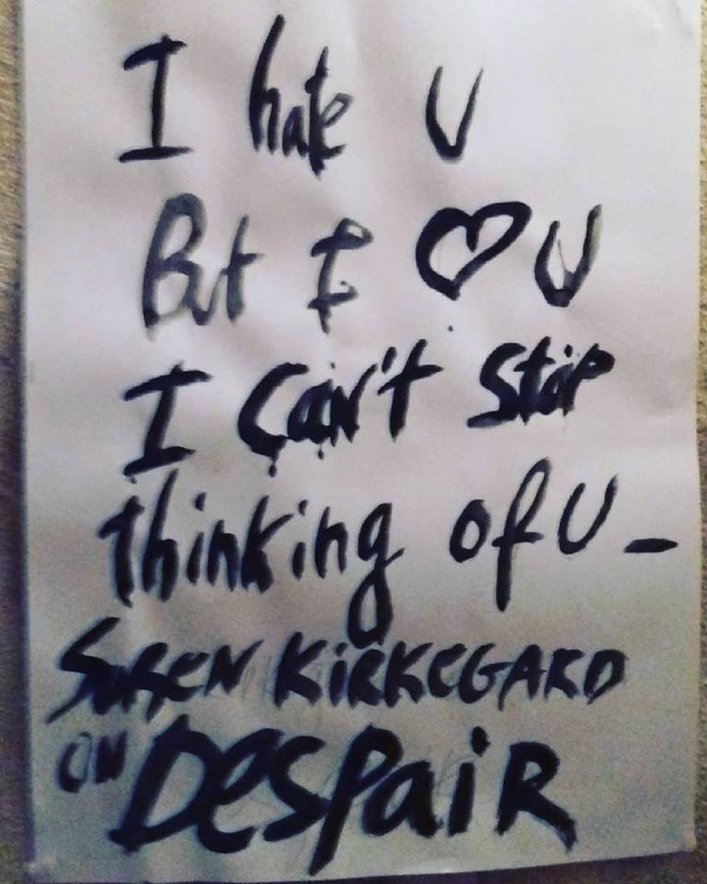 I hate U
But I ♡ U
I Can't Stop
thinking of U -
SOREN KiRKEGARD
ON DespaiR